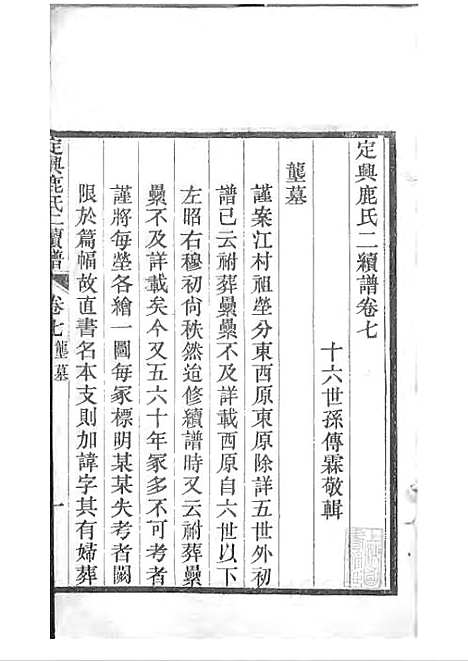 定興鹿氏二續譜卷七
十六世孫傳霖敬輯
壟墓
謹案江村祖塋分東西原東原除詳五世外初
譜已云祔葬纍纍不及詳載西原自六世以下
左昭右穆初尙秩然迨修續譜時又云祔葬纍
纍不及詳載矣今又五六十年冢多不可考者
謹將每塋各繪一圖每冢標明某某失考者闕
限於篇幅故直書名本支則加諱字其有婦葬
定興鹿氏二續譜
卷七
壟墓
一